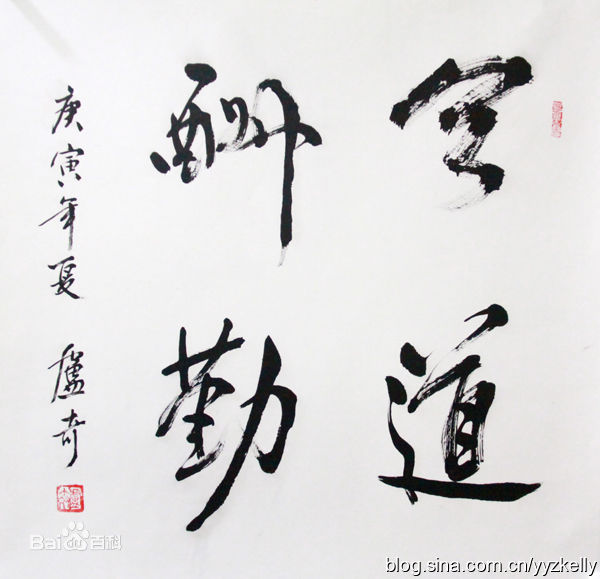 天道
酬勤
庚寅年夏 盧奇
Bai du 百科
blog.sina.com.cn/yyzkelly